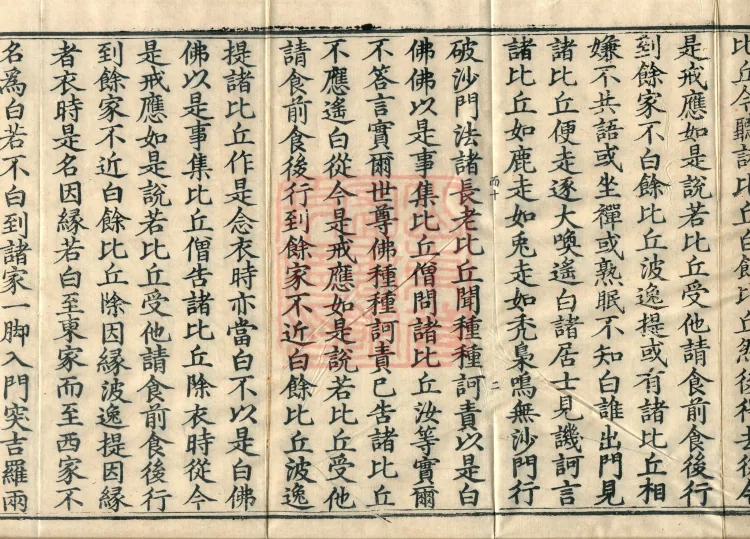 比丘今聽諸比丘白餘比丘然後得去從今
是戒應如是說若比丘受他請食前食後行
到餘家不白餘比丘波逸提或有諸比丘相
嫌不共語或坐禪或熟眠不知白誰出門見
諸比丘便走逐大喚遙白諸居士見譏訶言
諸比丘如鹿走如兎走如禿梟鳴無沙門行
而十 二
破沙門法諸長老比丘聞種種訶責以是白
佛佛以是事集比丘僧問諸比丘汝等實爾
不答言實爾世尊佛種種訶責已告諸比丘
不應遙白從今是戒應如是說若比丘受他
請食前食後行到餘家不近白餘比丘波逸
提諸比丘作是念衣時亦當白不以是白佛
佛以是事集比丘僧告諸比丘除衣時從今
是戒應如是說若比丘受他請食前食後行
到餘家不近白餘比丘除因緣波逸提因緣
者衣時是名因緣若白至東家而至西家不
名為白若不白到諸家一脚入門突吉羅兩